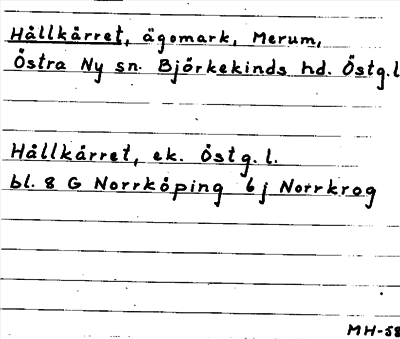 Hållkärret, ägomark, Merum,
Östra Ny sn. Björkekinds hd. Östg.l
Hållkärret, ek. Östg. l.
bl. 8 G Norrköping 6 j Norrkrog
MH-58